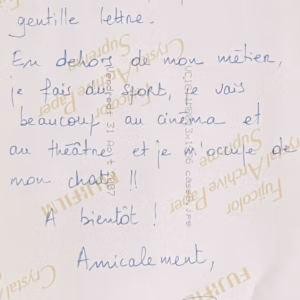 gentille lettre.
En dehors de mon métier,
je fais du sport, je vais
beaucoup au cinéma et
au théâtre et je m'occupe de
mon chat !!
A bientôt !
Amicalement,
Fujicolor
Crystal Archive Paper
Supreme
FUJIFILM